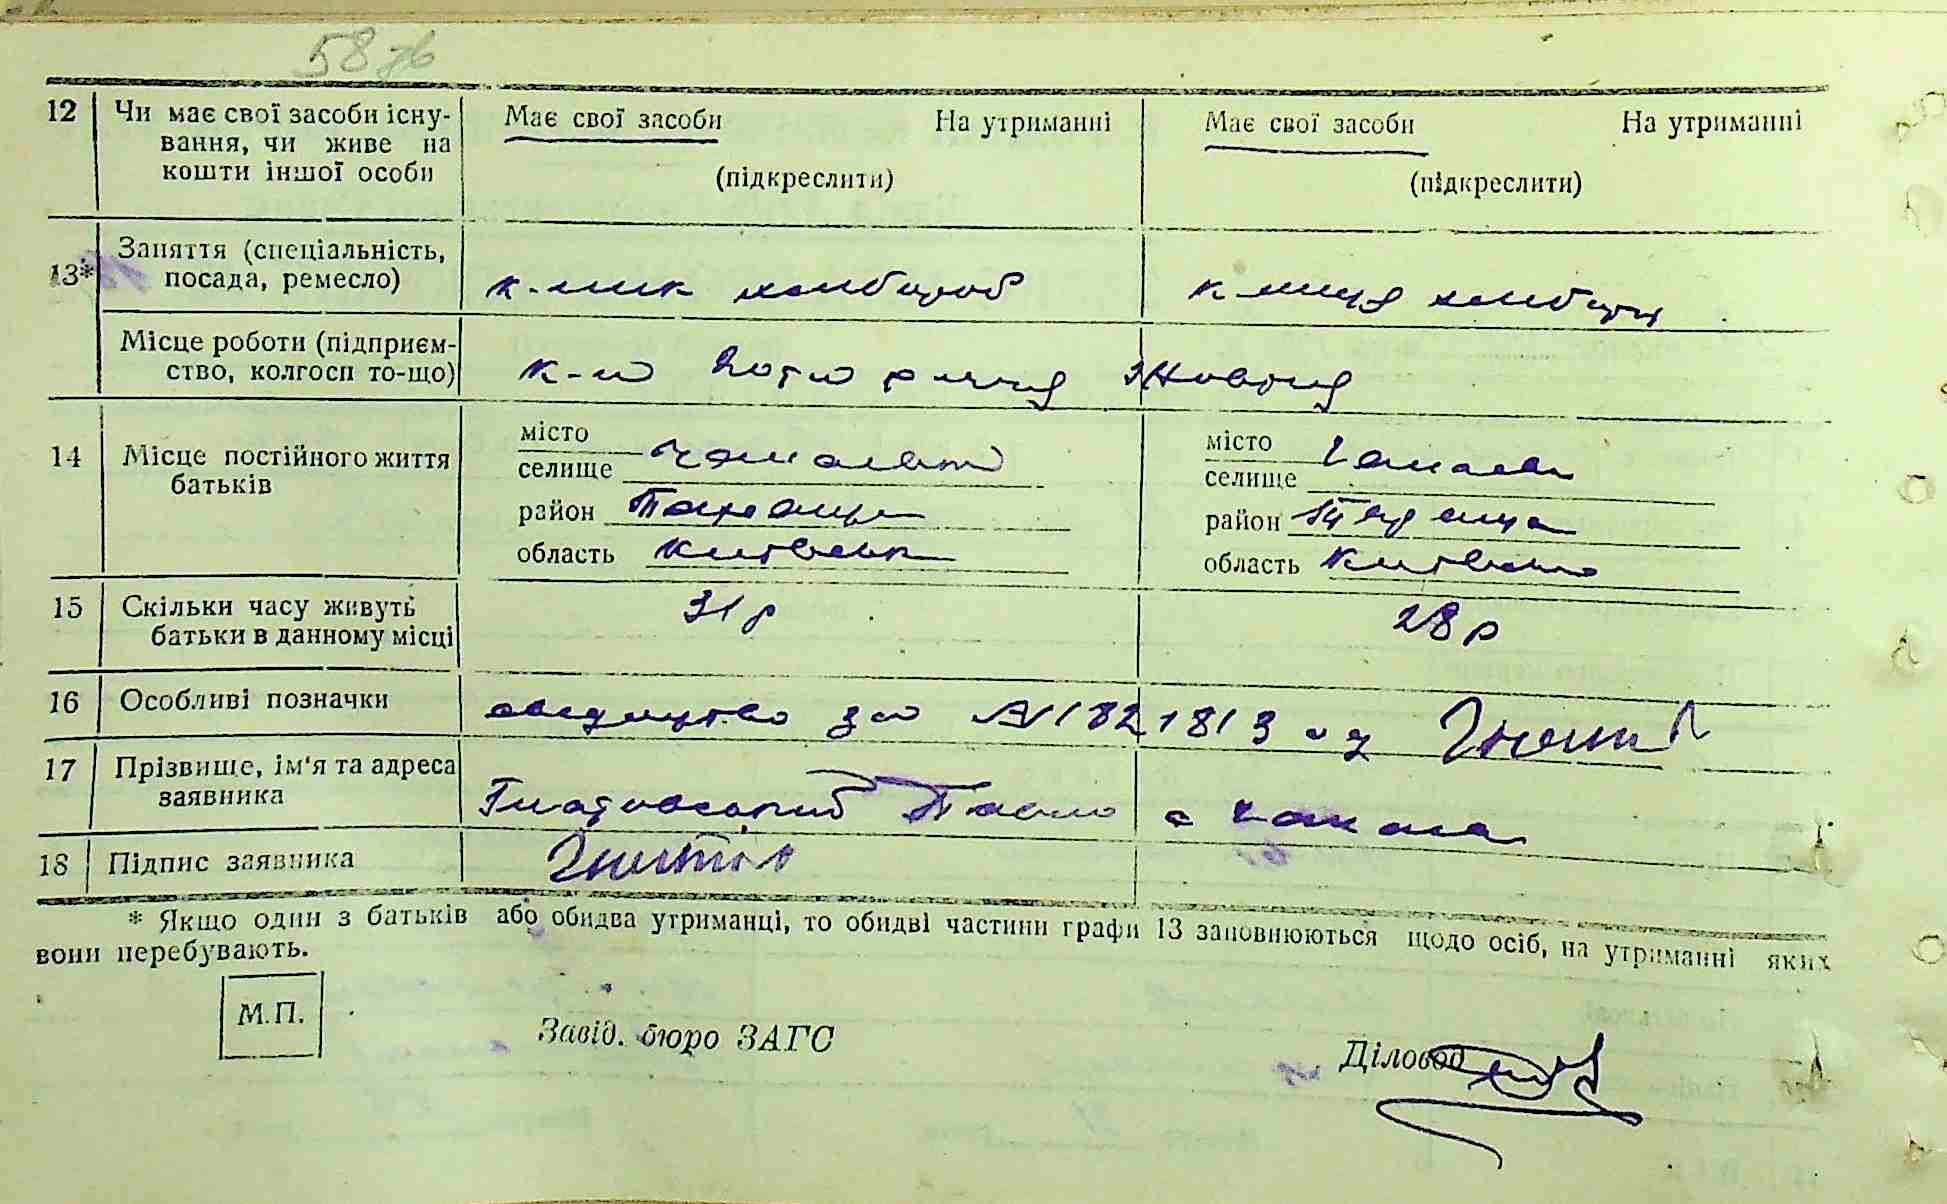 58 зв
12 Чи має свої засоби існу- Має свої засоби На утриманні Має свої засоби На утриманні
вання, чи живе на
кошти іншої особи (підкреслити) (підкреслити)
13* Заняття (спеціальність,
посада, ремесло) к-ник хлібороб к-ниця хлібороб
Місце роботи (підприєм-
ство, колгосп то-що) к-п річчя Жовтня
14 Місце постійного життя місто місто
батьків селище селище
район Таращан район Таращан
область Київськ область Київська
15 Скільки часу живуть 31 р 28 р
батьки в данному місці
16 Особливі позначки свідоцтво за № 1821813 од
17 Прізвище, ім'я та адреса
заявника Павло с
18 Підпис заявника
* Якщо один з батьків або обидва утриманці, то обидві частини графи 13 заповнюються щодо осіб, на утриманні яких
вони перебувають.
М.П.
Завід. бюро ЗАГС
Діловод